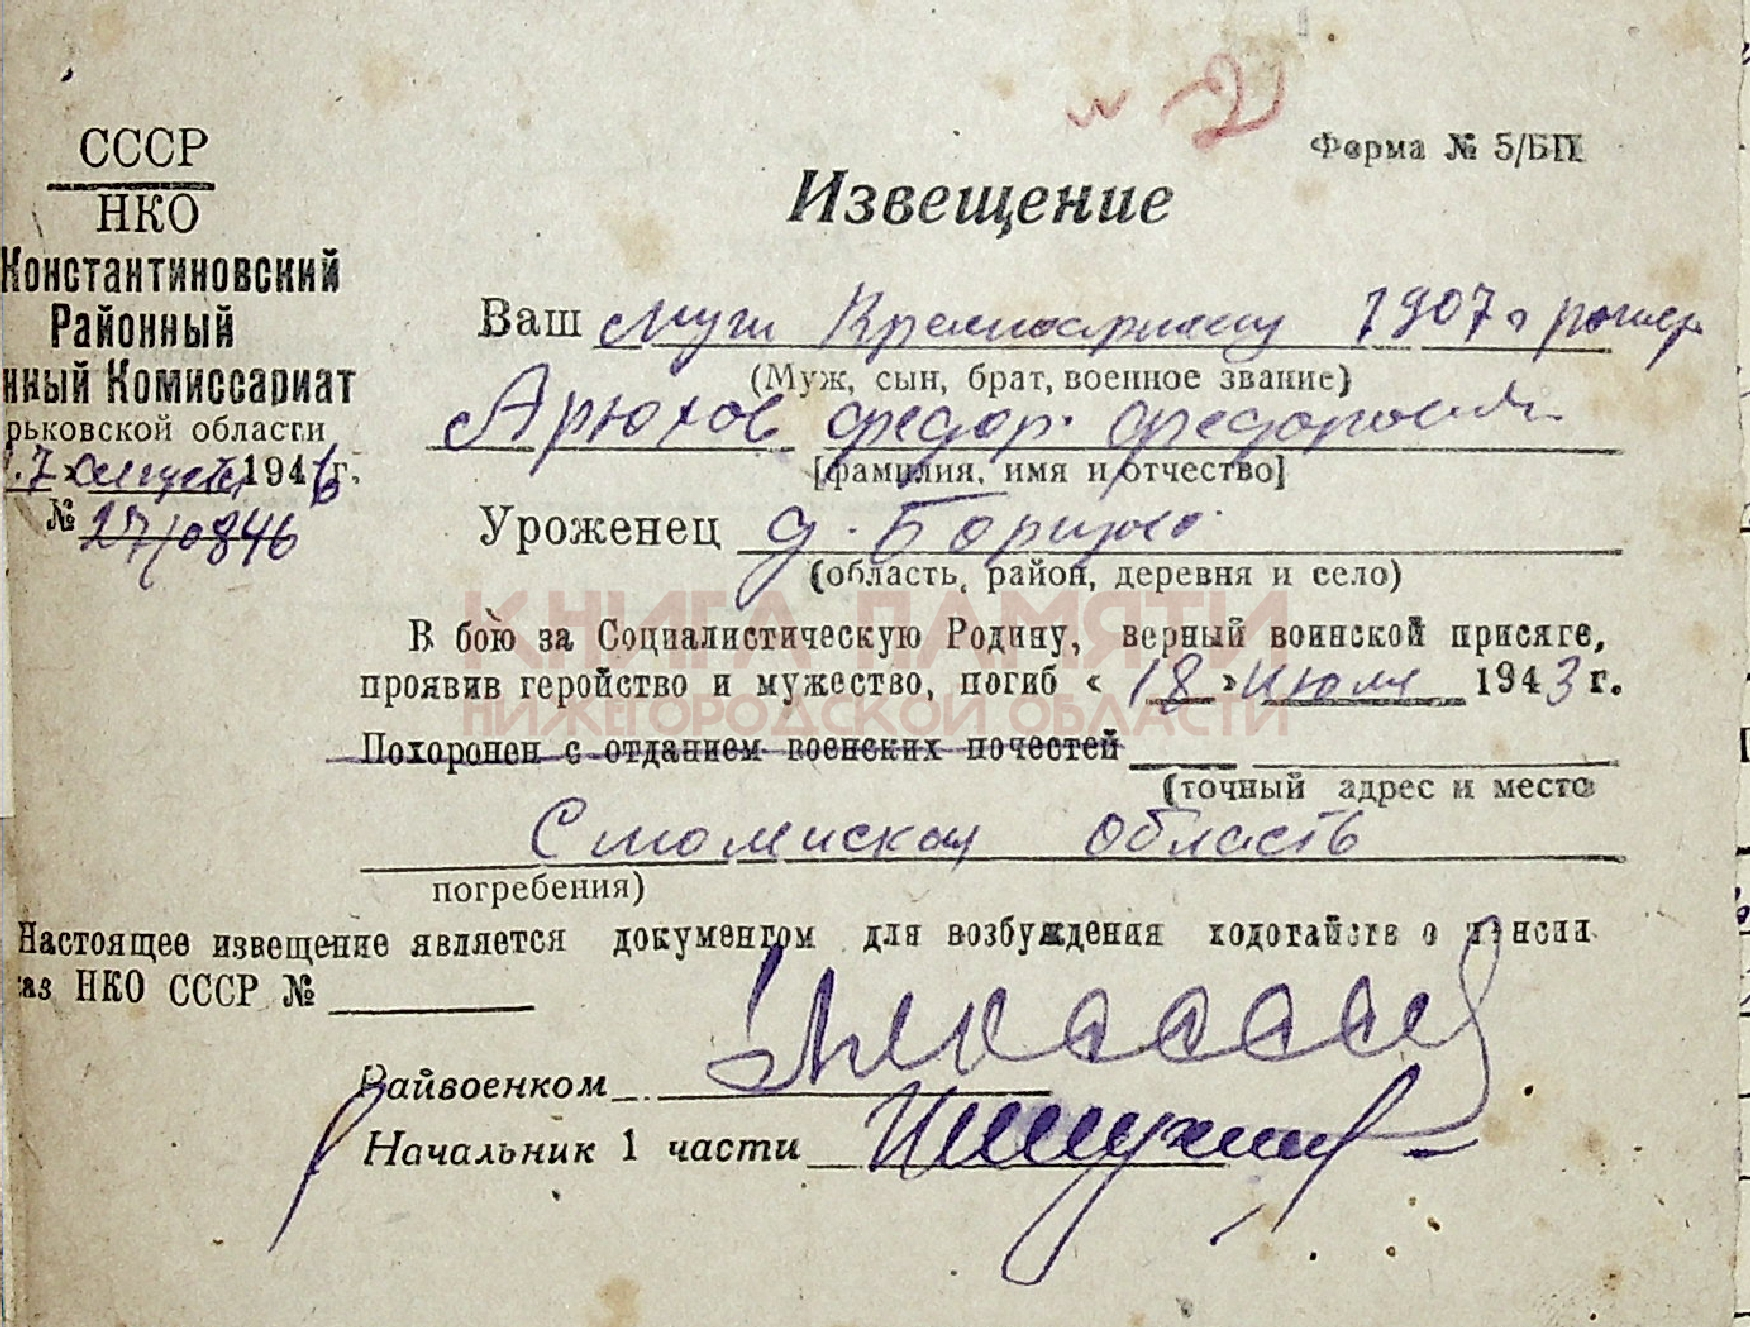 № 2
Форма № 5/БП
СССР
НКО
Константиновский
Районный
нный Комиссариат
рьковской области
7 августа 1946 г.
№ 27/0846
Извещение
Ваш муж Красноармеец 1907 г рожд
(Муж, сын, брат, военное звание)
Арюхов Федор Федорович
[фамилия, имя и отчество]
Уроженец д.
(область, район, деревня и село)
В бою за Социалистическую Родину, верный воинской присяге,
проявив геройство и мужество, погиб «18» июля 1943 г.
Похоронен с отданием военских почестей
(точный адрес и место
область
погребения)
Настоящее извещение является документом для возбуждения ходотайств о пенсии
каз НКО СССР №
Райвоенком
Начальник 1 части
КНИГА ПАМЯТИ
НИЖЕГОРОДСКОЙ ОБЛАСТИ